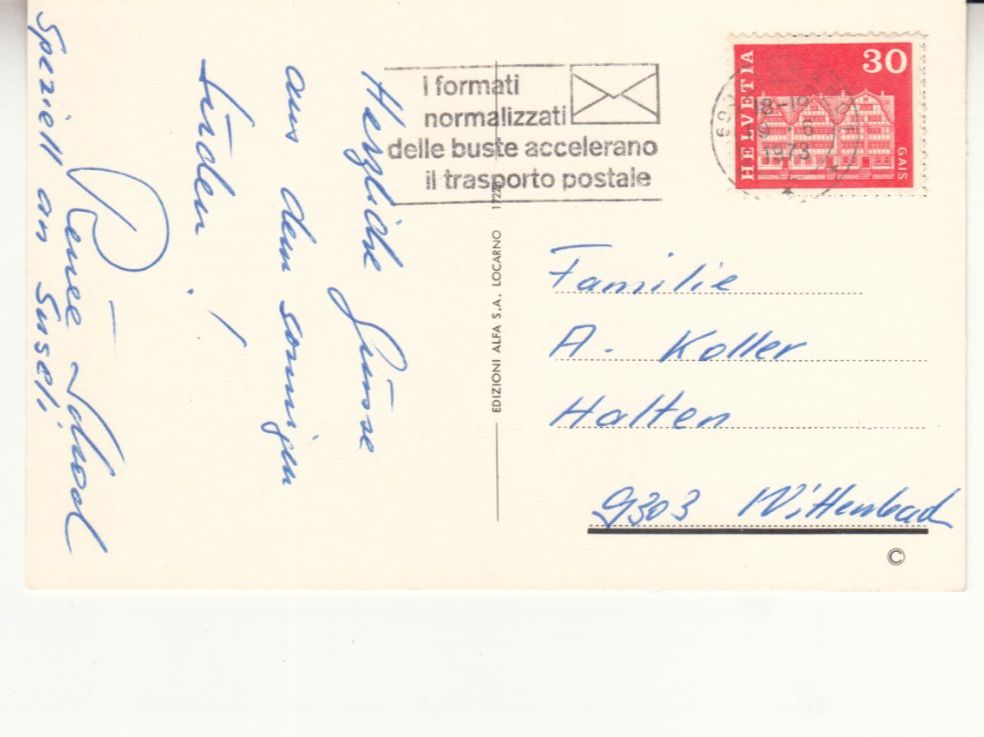 Herzliche Grüsse
aus dem sonnigen
Süden!
Renée
Speziell an Suseli
I formati
normalizzati
delle buste accelerano
il trasporto postale
HELVETIA
30
GAIS
18-19
1973
EDIZIONI ALFA S.A. LOCARNO
Familie
A. Koller
Halten
9303 Wittenbach
©